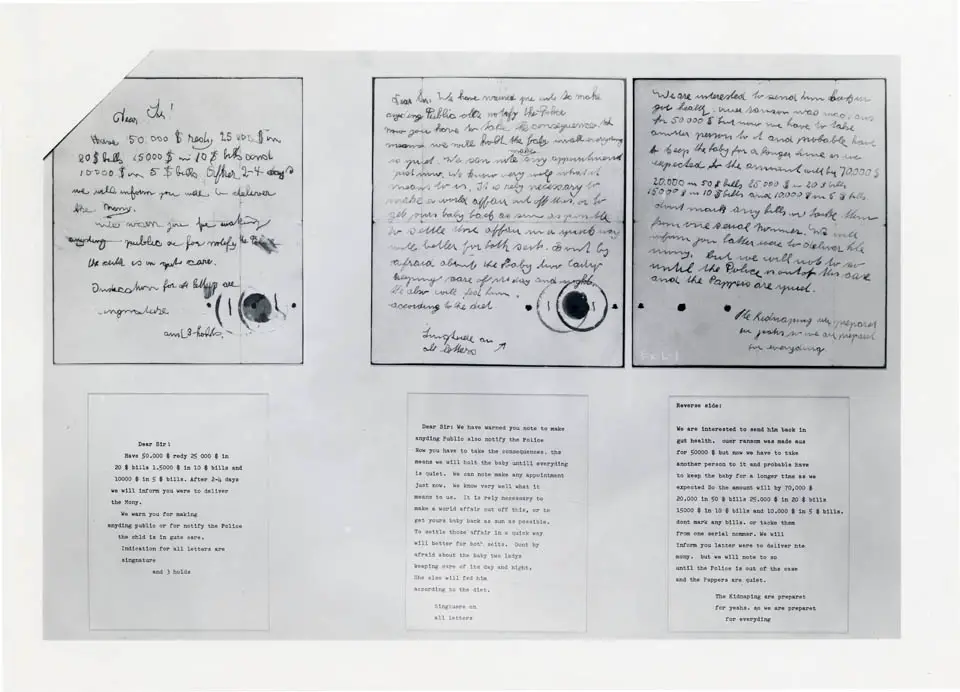 Dear Sir!
Have 50.000 $ redy 25 000 $ in
20 $ bills 15000 $ in 10 $ bills and
10000 $ in 5 $ bills After 2-4 days
we will inform you were to deliver
the Mony.
We warn you for making
anyding public or for notify the
the child is in gute care.
Indication for all letters are
singnature
and 3 holds.
Dear Sir. We have warned you note to make
anyding Public also notify the Police
now you have to take the consequences. ths
means we will holt the baby untill everyding
is quiet. We can note make any appointment
just now. We know very well what it
means to us. It is rely necessary to
make a world affair out off this, or to
get yours baby back as sun as possible
to settle those affair in a quick way
will better for both seits. Dont by
afraid about the Baby two ladys
keeping care of its day and night.
She also will fed him
according to the diet
Singtuere on
all letters
We are interested to send him back in
gut health. ouer ransom was made aus
for 50000 $ but now we have to take
another person to it and probable have
to keep the baby for a longer time as we
expected So the amount will by 70,000 $
20.000 in 50 $ bills 25.000 $ in 20 $ bills
15000 $ in 10 $ bills and 10.000 $ in 5 $ bills
dont mark any bills, or tacke them
from one serial nommer. We will
inform you latter were to deliver the
mony. but we will not to so
until the Police is out of ths case
and the Pappers are quiet.
The Kidnaping are preparet
for yeahs so we are preparet
for everyding
Dear Sir!
Have 50.000 $ redy 25 000 $ in
20 $ bills 1.5000 $ in 10 $ bills and
10000 $ in 5 $ bills. After 2-4 days
we will inform you were to deliver
the Mony.
We warn you for making
anyding public or for notify the Police
the chld is in gute care.
Indication for all letters are
singnature
and 3 holds
Dear Sir: We have warned you note to make
anyding Public also notify the Police
Now you have to take the consequences. ths
means we will holt the baby untill everyding
is quiet. We can note make any appointment
just now. We know very well what it
means to us. It is rely necessary to
make a world affair out off this, or to
get yours baby back as sun as possible.
To settle those affair in a quick way
will better for both seits. Dont by
afraid about the baby two ladys
keeping care of its day and night.
She also will fed him
according to the diet.
Singtuere on
all letters
Reverse side:
We are interested to send him back in
gut health. ouer ransom was made aus
for 50000 $ but now we have to take
another person to it and probable have
to keep the baby for a longer time as we
expected So the amount will by 70,000 $
20.000 in 50 $ bills 25.000 $ in 20 $ bills
15000 $ in 10 $ bills and 10.000 $ in 5 $ bills.
dont mark any bills. or tacke them
from one serial nommer. We will
inform you latter were to deliver hte
mony. but we will note to so
until the Police is out of the case
and the Pappers are quiet.
The Kidnaping are preparet
for yeahs. so we are preparet
for everyding